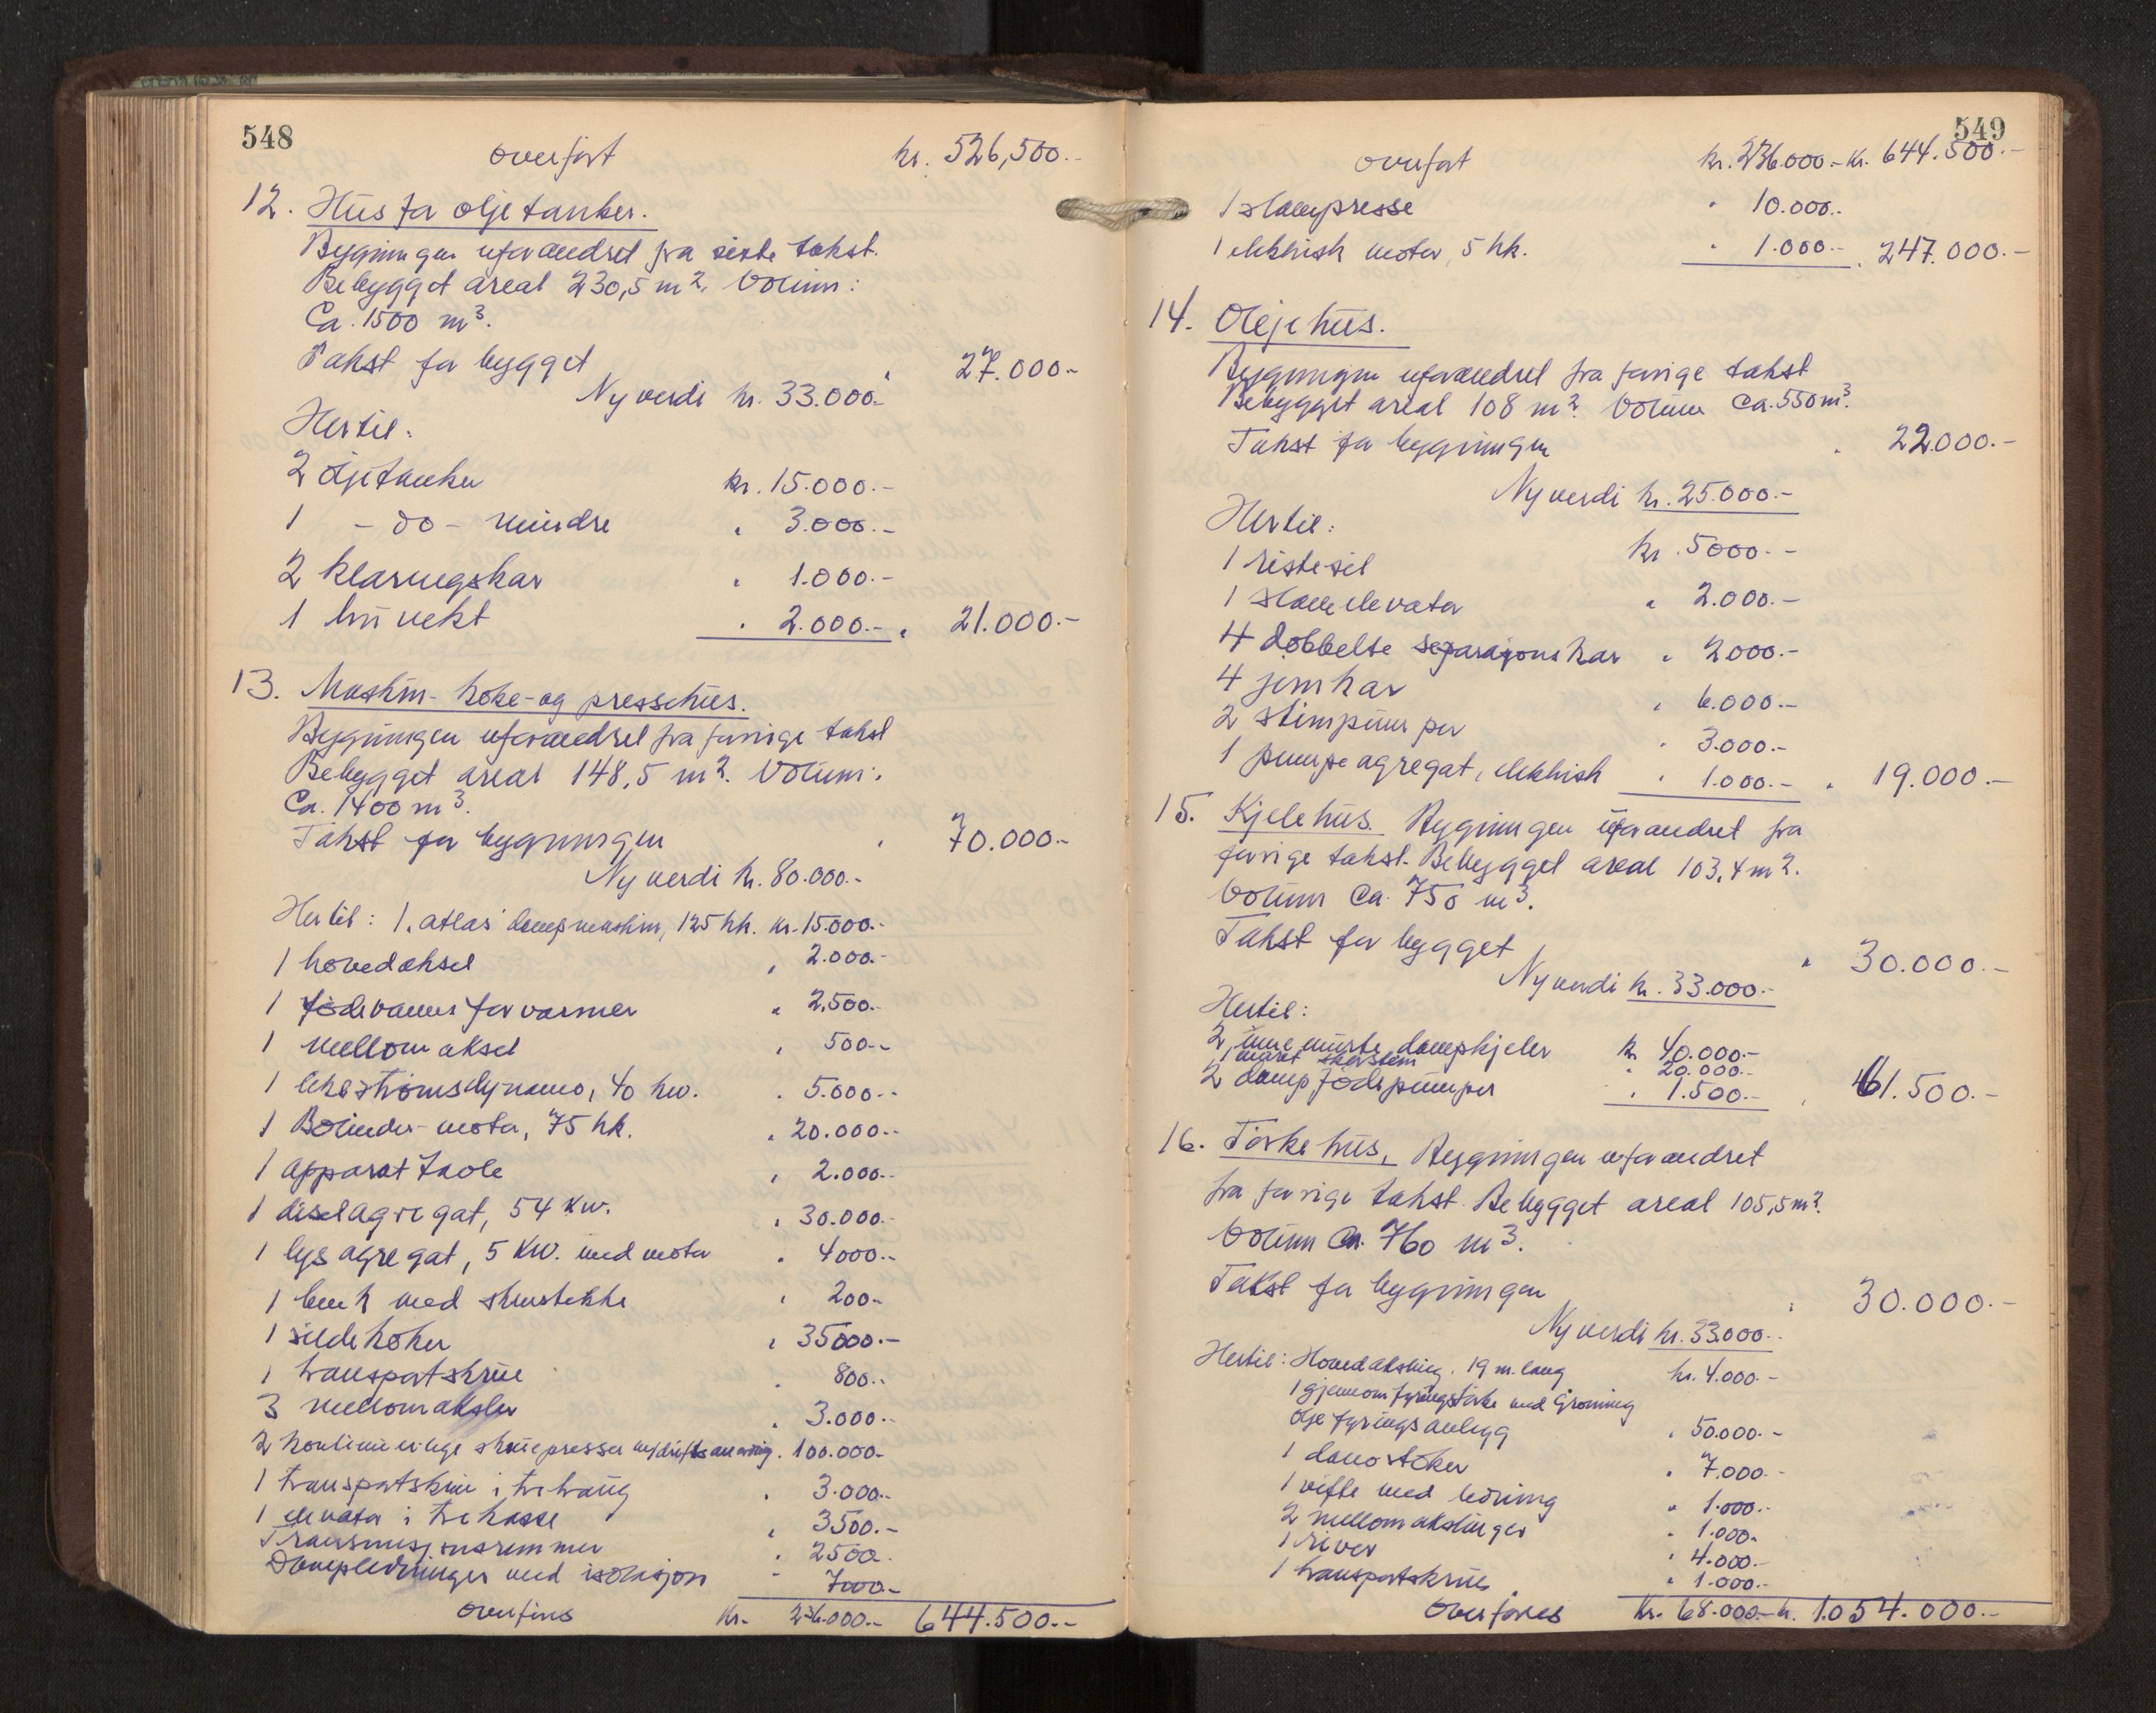 548
overført kr. 526,500.-
12. Hus for oljetanker.
Bygningen uforandret fra siste takst.
Bebygget areal 230,5 m². Volum:
Ca. 1500 m³.
Takst for bygget " 27.000.-
Ny verdi kr. 33.000.-
Hertil:
2 oljetanker kr. 15.000.-
1 -do- mindre " 3.000.-
2 klaringskar " 1.000.-
1 bruvekt " 2.000.- " 21.000.-
13. Maskin- koke- og pressehus.
Bygningen uforandret fra forrige takst
Bebygget areal 148,5 m². Volum:
Ca. 1400 m³.
Takst for bygningen " 70.000.-
Ny verdi kr. 80.000.-
Hertil: 1. atlas dampmaskin, 125 hk. kr. 15.000.-
1 hovedaksel " 2.000.-
1 fødevannsforvarmer " 2,500.-
1 mellomaksel " 500.-
1 likestrømsdynamo, 40 kw. " 5.000.-
1 Bolinder-motor, 75 hk. " 20.000.-
1 apparattavle " 2.000.-
1 diselagregat, 54 kw. " 30.000.-
1 lysagregat, 5 KW. med motor " 4000.-
1 benk med skrustikke " 200.-
1 sildekoker " 35000.-
1 transportskrue " 800.-
3 mellomaksler " 3.000.-
2 kontinuerlige skruepresser m/driftsanordning " 100.000.-
1 transportskrue i tretraug " 3.000.-
1 elevator i trekasse " 3500.-
Transmisjonsremmer " 2500.
Dampledninger med isolasjon " 7000.-
overføres Kr. 236.000.- 644.500.-
549
overført kr. 236.000.- kr. 644.500.-
1 slampresse " 10.000.-
1 elektrisk motor, 5 hk. " 1.000.- " 247.000.-
14. Oljehus.
Bygningen uforandret fra forrige takst
Bebygget areal 108 m². Volum Ca. 550 m³.
Takst for bygningen " 22.000.-
Ny verdi kr. 25.000.-
Hertil:
1 ristesil kr. 5000.-
1 slamelevator " 2.000.-
4 dobbelte separasjonskar " 2000.-
4 jernkar " 6.000.-
2 stimpumper " 3.000.-
1 pumpeagregat, elektrisk " 1.000.- " 19.000.-
15. Kjelehus. Bygningen uforandret fra
forrige takst. Bebygget areal 103,4 m².
Volum Ca. 750 m³.
Takst for bygget " 30.000.-
Ny verdi kr. 33.000.-
Hertil:
2 innemurte dampkjeler kr 40.000.-
1 muret skorstein " 20.000.-
2 dampfødepumper " 1.500.- " 61.500.-
16. Tørkehus. Bygningen uforandret
fra forrige takst. Bebygget areal 105,5 m².
Volum Ca. 760 m³.
Takst for bygningen " 30.000.-
Ny verdi kr. 33.000.-
Hertil: Hovedaksling. 19 m. lang kr. 4.000.-
1 gjennomfyringstørke med Grøning
oljefyringsanlegg " 50.000.-
1 danostoker " 7.000.-
1 vifte med ledning " 1.000.-
2 mellomakslinger " 1.000.
1 river " 4.000.-
1 transportskrue " 1.000.-
Overføres Kr. 68.000.- kr. 1.054.000.-